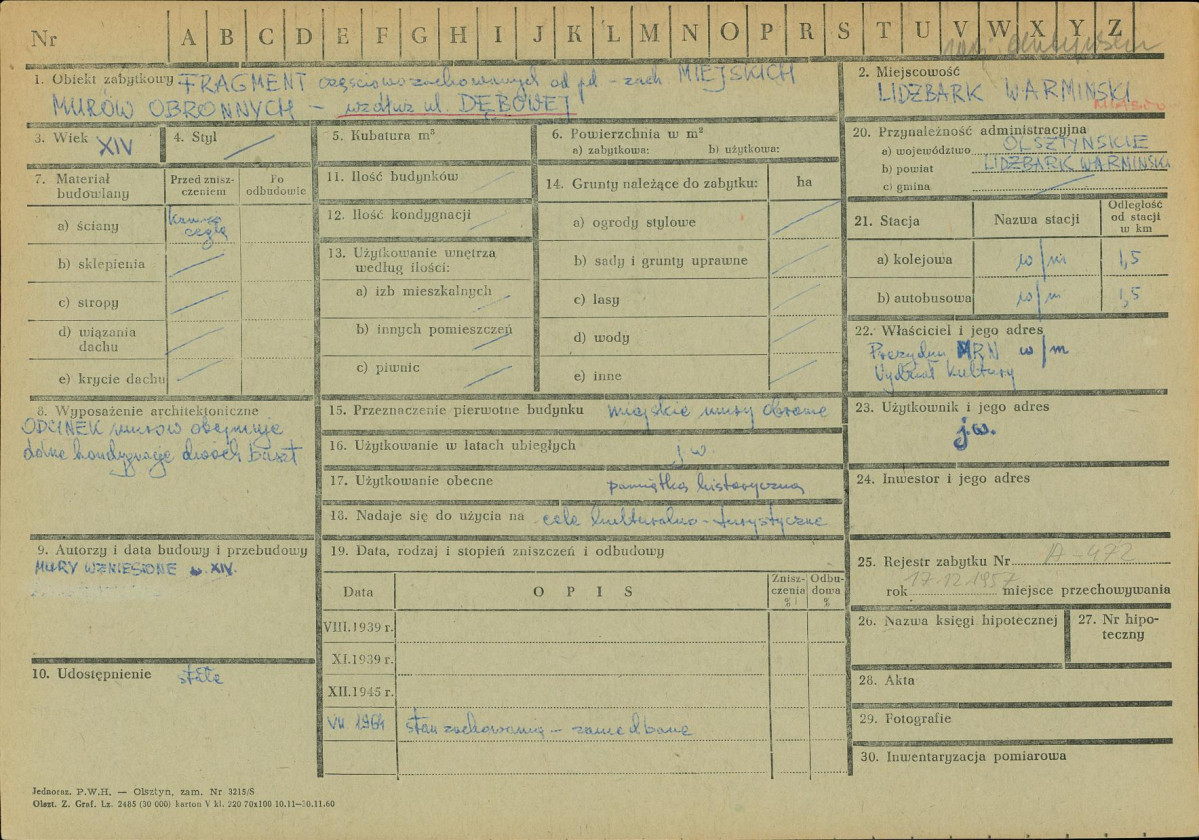 Nr A B C D E F G H I J K L M N O P R S T U V W X Y Z
1. Obiekt zabytkowy FRAGMENT częściowo zachowanych od pd - zach MIEJSKICH
MURÓW OBRONNYCH – wzdłuż ul. DĘBOWEJ
2. Miejscowość
LIDZBARK WARMIŃSKI
MIASTO
3. Wiek XIV
4. Styl
5. Kubatura m³
6. Powierzchnia w m²
a) zabytkowa: b) użytkowa:
20. Przynależność administracyjna
a) województwo OLSZTYŃSKIE
b) powiat LIDZBARK WARMIŃSKI
c) gmina
7. Materiał budowlany
Przed zniszczeniem
Po odbudowie
a) ściany
cegła
b) sklepienia
c) stropy
d) wiązania dachu
e) krycie dachu
11. Ilość budynków
12. Ilość kondygnacji
13. Użytkowanie wnętrza
według ilości:
a) izb mieszkalnych
b) innych pomieszczeń
c) piwnic
14. Grunty należące do zabytku: ha
a) ogrody stylowe
b) sady i grunty uprawne
c) lasy
d) wody
e) inne
21. Stacja Nazwa stacji Odległość od stacji w km
a) kolejowa w/m 1,5
b) autobusowa w/m 1,5
22. Właściciel i jego adres
Prezydium MRN w/m
Wydział Kultury
8. Wyposażenie architektoniczne
ODCINEK murów obejmuje
dolne kondygnacje dwóch baszt
15. Przeznaczenie pierwotne budynku miejskie mury obronne
16. Użytkowanie w latach ubiegłych j.w.
17. Użytkowanie obecne pamiątka historyczna
18. Nadaje się do użycia na cele kulturalno-turystyczne
23. Użytkownik i jego adres
j.w.
24. Inwestor i jego adres
9. Autorzy i data budowy i przebudowy
MURY WZNIESIONE w. XIV.
10. Udostępnienie stałe
19. Data, rodzaj i stopień zniszczeń i odbudowy
Data OPIS Zniszczenia % Odbudowa %
VIII.1939 r.
XI.1939 r.
XII.1945 r.
VII 1964 stan zachowania – zaniedbane
25. Rejestr zabytku Nr A-472
rok 17.12.1957 miejsce przechowywania
26. Nazwa księgi hipotecznej
27. Nr hipoteczny
28. Akta
29. Fotografie
30. Inwentaryzacja pomiarowa
Jednoraz. P.W.H. — Olsztyn, zam. Nr 3215/S
Olszt. Z. Graf. Lz. 2485 (30 000) karton V kl. 220 70x100 10.11—30.11.60